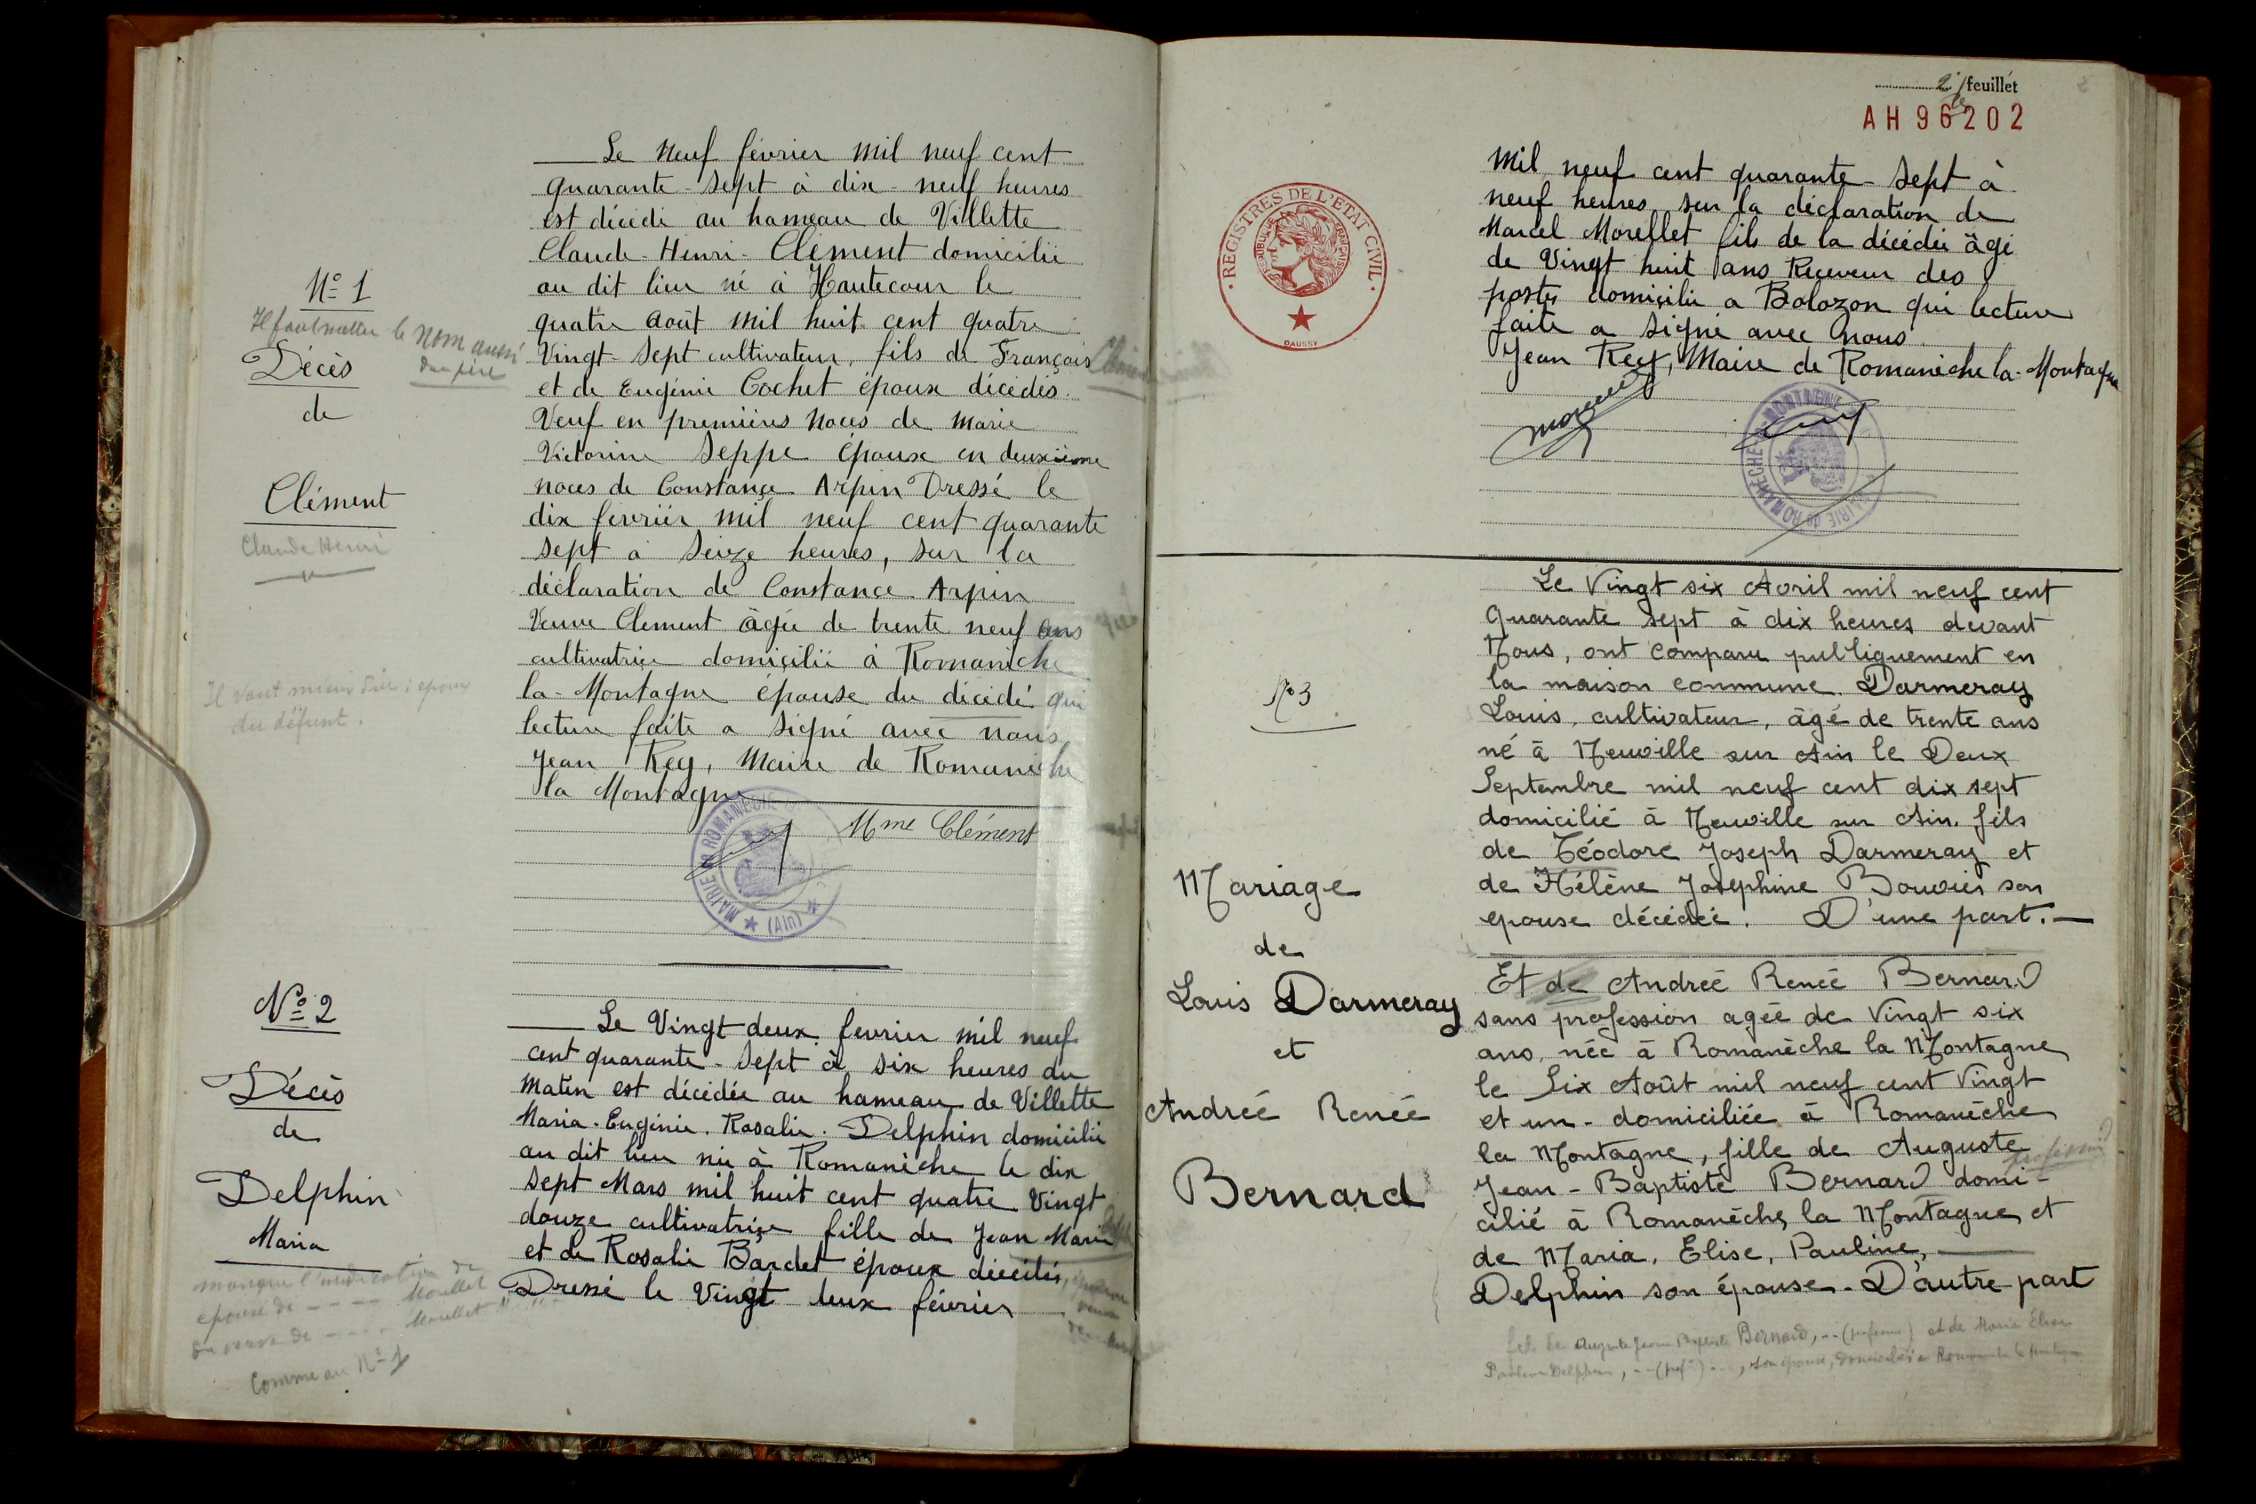 Nº 1
Il faut mettre le nom aussi
du père
Décès
de
Clément
Claude Henri
Il vaut mieux dire : époux
du défunt.
Le neuf février mil neuf cent
quarante-sept à dix-neuf heures
est décédé au hameau de Villette
Claude-Henri-Clément domicilié
au dit lieu né à Hautecour le
quatre août mil huit cent quatre
Vingt-sept cultivateur, fils de François Clément
et de Eugénie Cochet époux décédés.
Veuf en premières noces de Marie
Victorine Seppe époux en deuxième
noces de Constance Arpin Dressé le
dix fevrier mil neuf cent quarante
sept à seize heures, sur la
déclaration de Constance Arpin
Veuve Clement âgée de trente neuf ans
cultivatrice domicilié à Romanèche
la-Montagne épouse du décédé qui
lecture faite a signé avec nous
Jean Rey, Maire de Romanèche
la Montagne
Mme Clément
MAIRIE de ROMANÈCHE
★ (Ain) ★
Nº 2
Décès
de
Delphin
Maria
manque l'indication de
épouse de - - - - Morellet
ou veuve de - - - - Morellet
Comme au Nº 1
Le Vingt deux fevrier mil neuf
cent quarante-sept à six heures du
matin est décédée au hameau de Villette
Maria. Eugénie. Rosalie. Delphin domicilié
au dit lieu née à Romanèche le dix
sept Mars mil huit cent quatre Vingt
douze cultivatrice fille de Jean Marie
et de Rosalie Bardet époux décédés,
Dressé le Vingt deux février
2e feuillet
AH 96202
REGISTRES DE L'ETAT CIVIL
DAUSSY
mil neuf cent quarante-sept à
neuf heures sur la déclaration de
Marcel Morellet fils de la décédée âgé
de Vingt huit ans Receveur des
postes domicilié a Bolozon qui lecture
faite a signé avec nous
Jean Rey, Maire de Romanèche la-Montagne
MAIRIE de ROMANÈCHE MONTAGNE
Nº 3
Mariage
de
Louis Darmeray
et
Andreé Reneé
Bernard
Le Vingt six Avril mil neuf cent
Quarante sept à dix heures devant
Nous, ont comparu publiquement en
la maison commune Darmeray
Louis, cultivateur, âgé de trente ans
né à Neuville sur Ain le Deux
Septembre mil neuf cent dix sept
domicilié à Neuville sur Ain. fils
de Téodore Joseph Darmeray et
de Hélène Joséphine Bouvier son
epouse décédeé. D'une part.—
Et de Andreé Reneé Bernard
sans profession ageé de Vingt six
ans, née à Romanèche la Montagne
le Six Août mil neuf cent Vingt
et un - domiciliée à Romanèche
la Montagne, fille de Auguste
profession
Jean-Baptiste Bernard domi-
cilié à Romanèche la Montagne et
de Maria, Elise, Pauline,
Delphin son épouse. D'autre part
de Auguste Jean Baptiste Bernard, -- (profession) et de Maria Élise
Pauline Delphin, -- (prof.) --, son épouse, domiciliés à Romanèche la Montagne